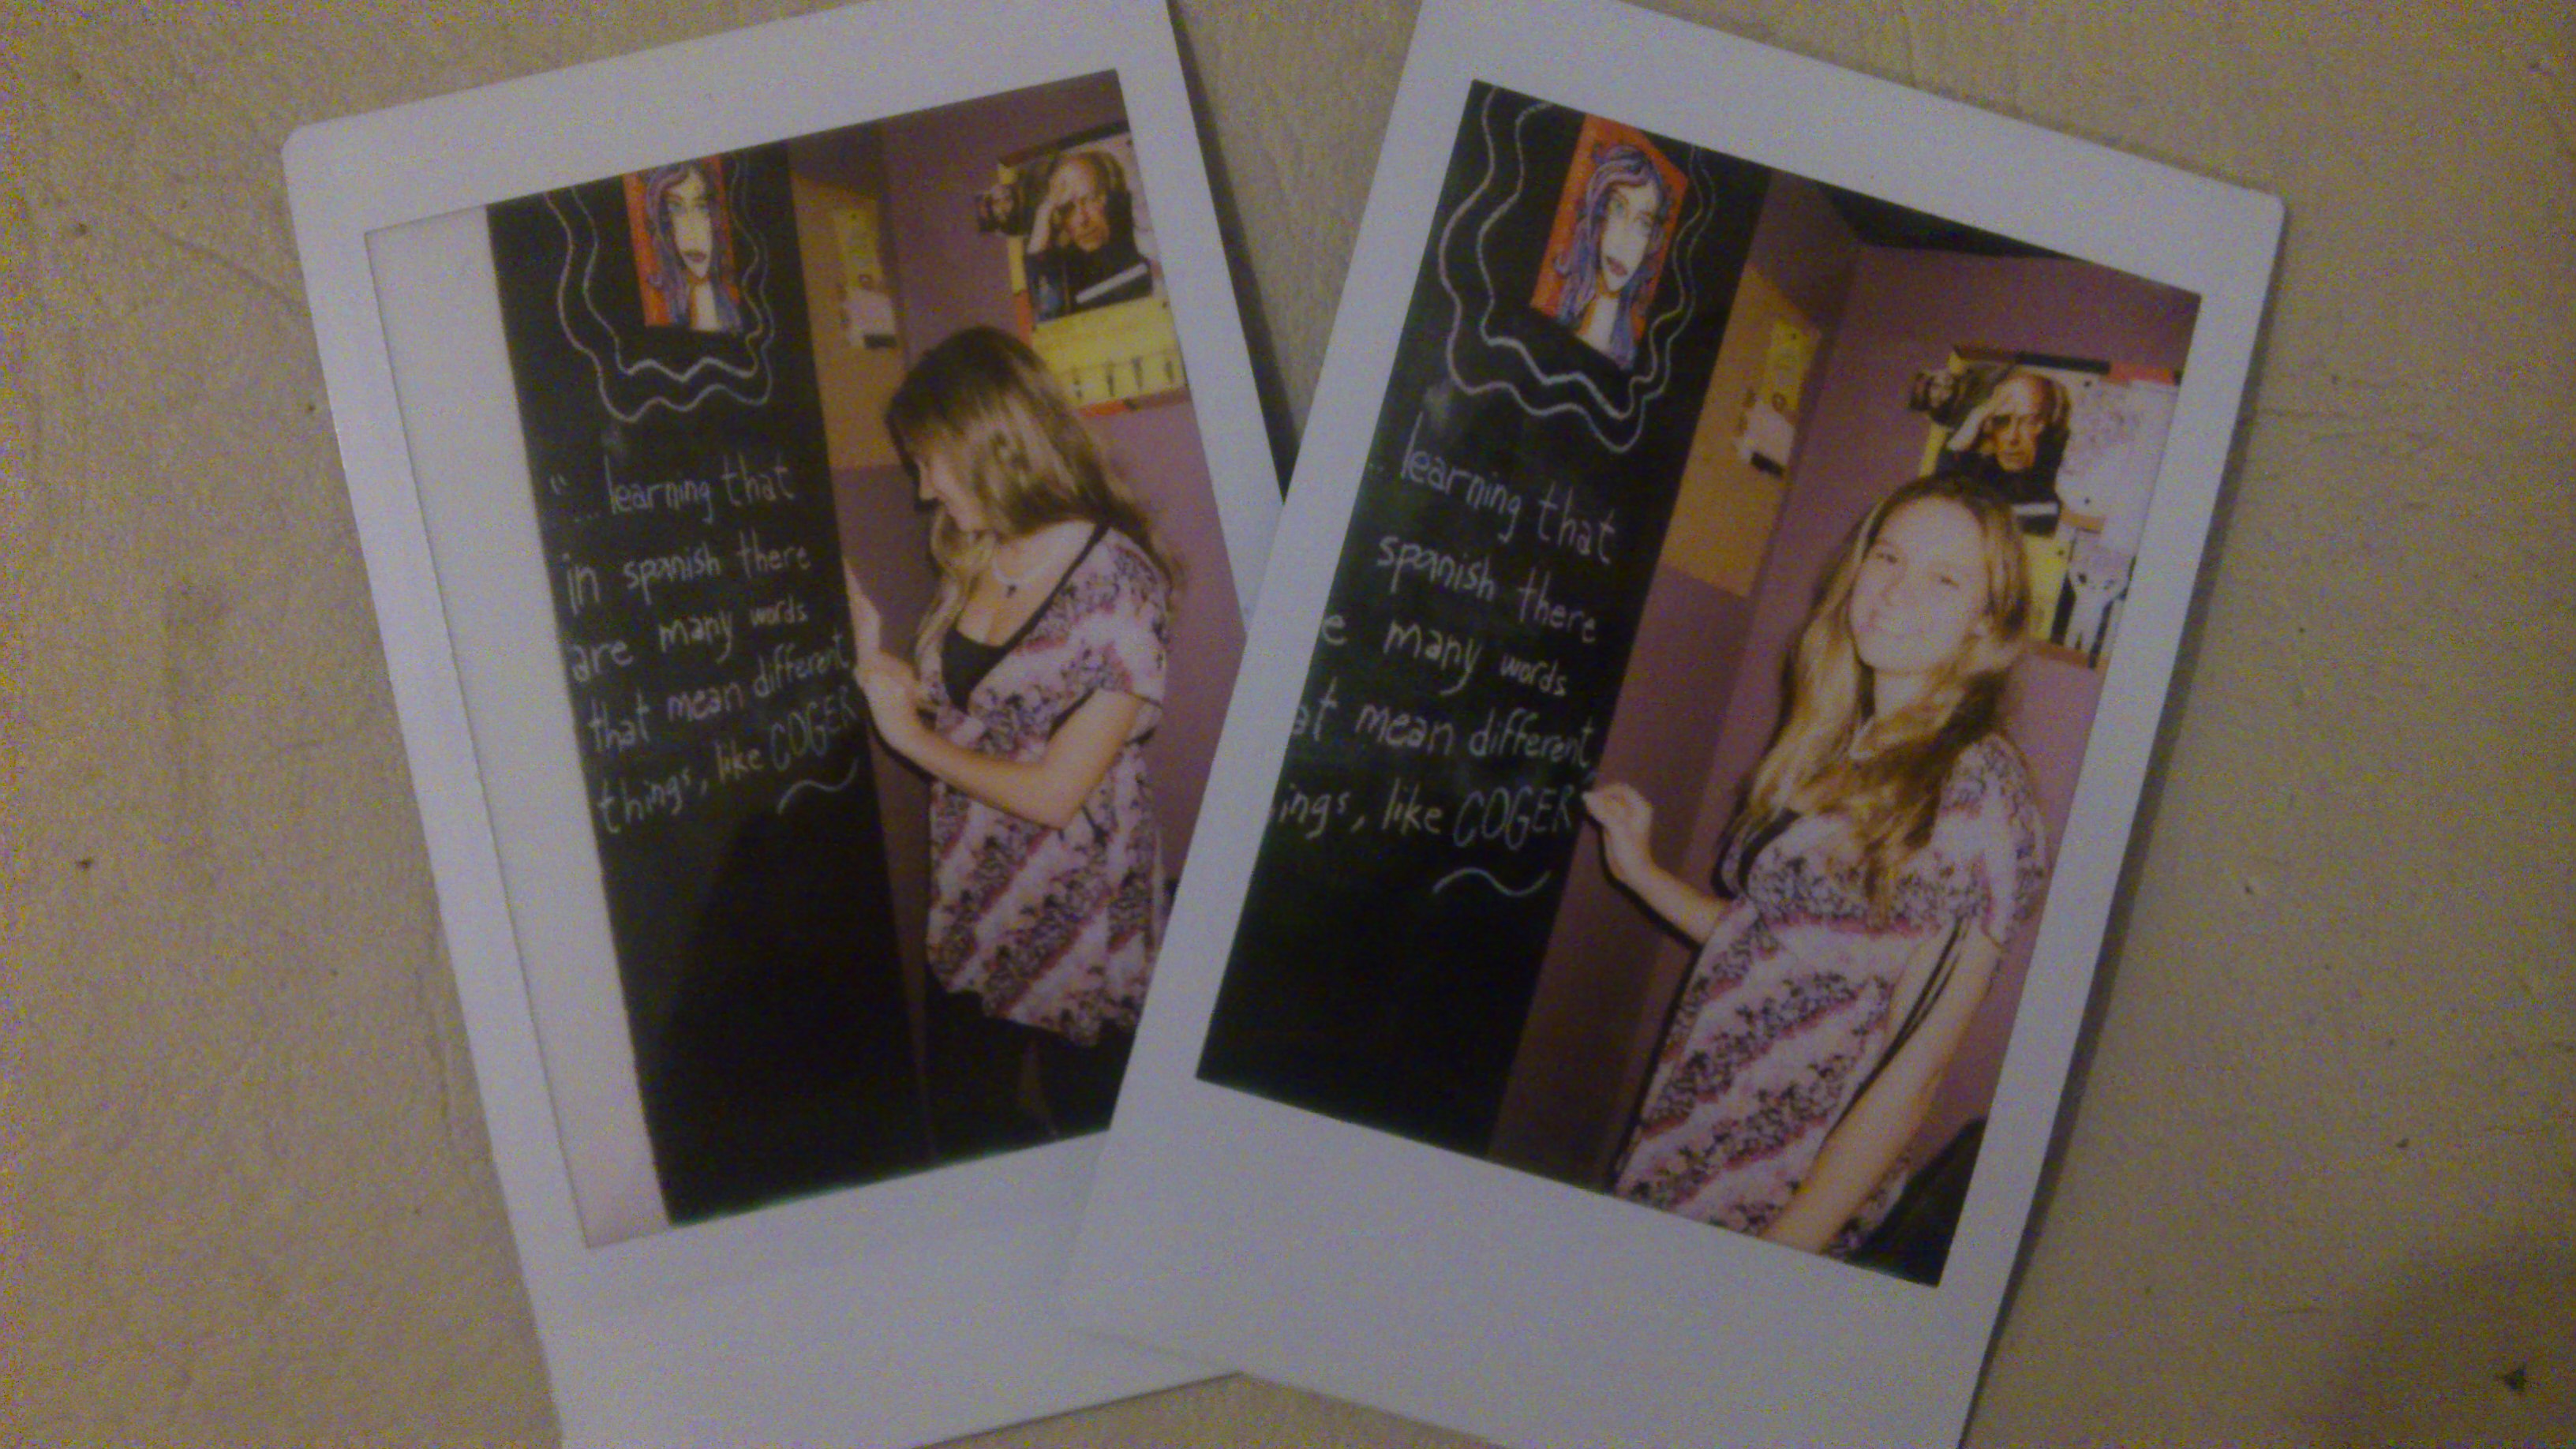 "... learning that
in spanish there
are many words
that mean different
things, like COGER
.. learning that
spanish there
e many words
at mean different
ings, like COGER